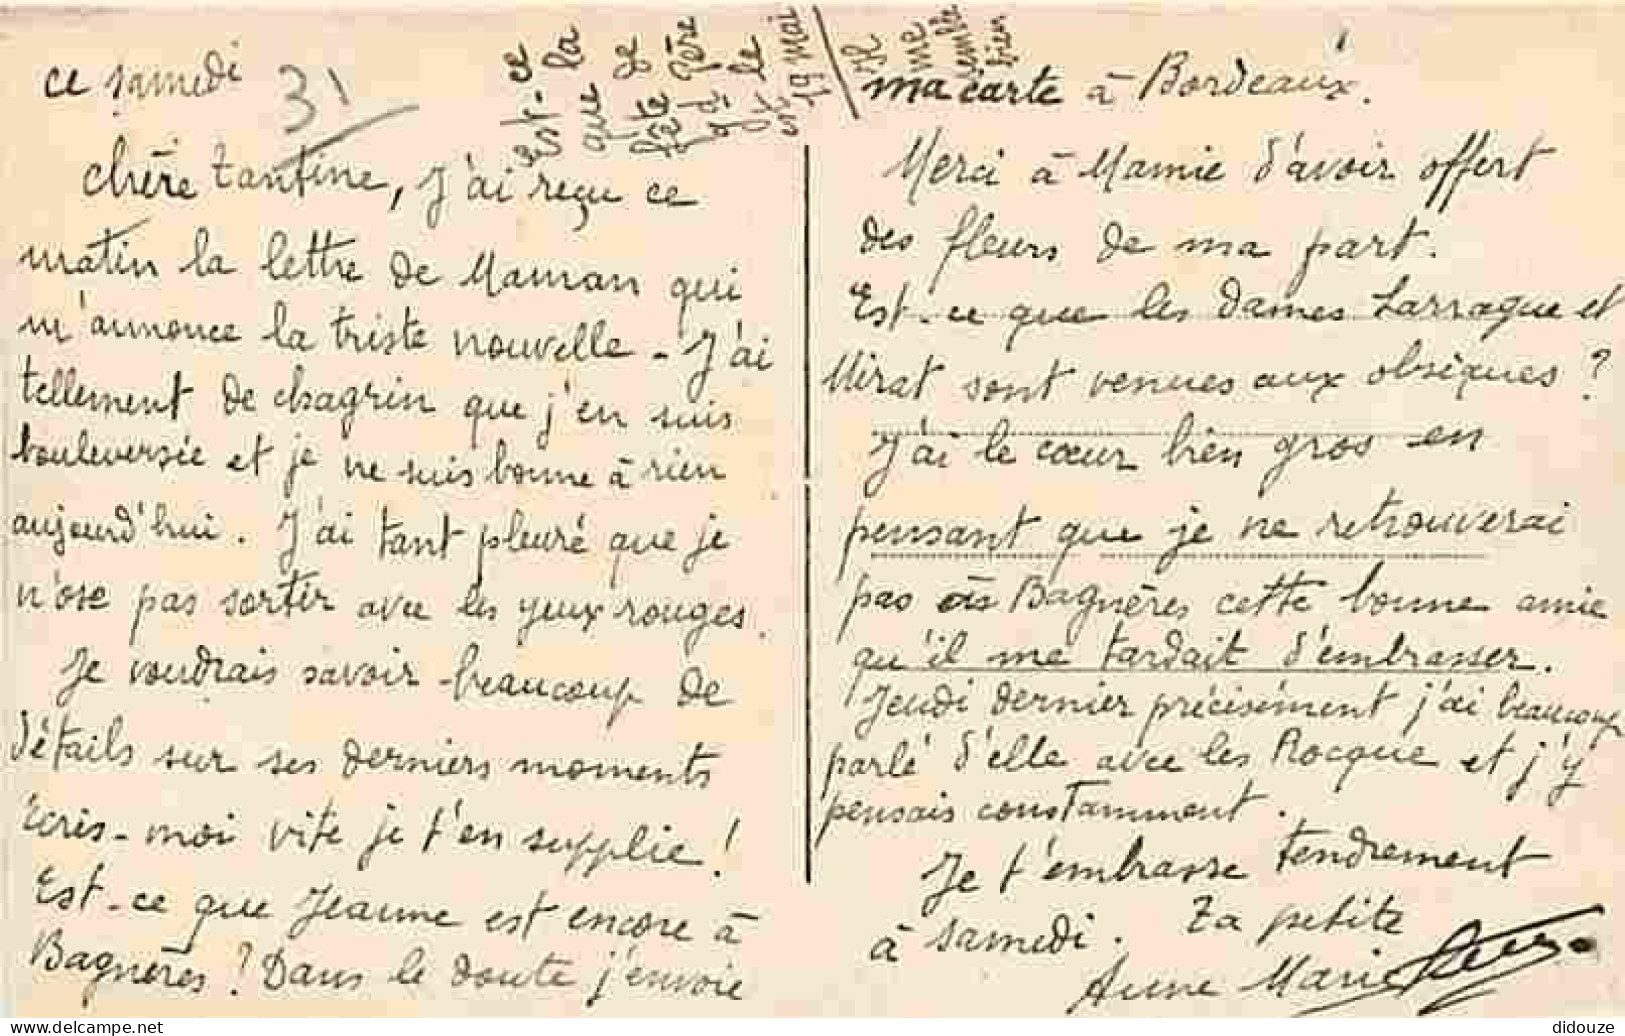 ce samedi
31
chère Tantine, J'ai reçu ce
matin la lettre de Maman qui
m'annonce la triste nouvelle - J'ai
tellement de chagrin que j'en suis
bouleversée et je ne suis bonne à rien
aujourd'hui. J'ai tant pleuré que je
n'ose pas sortir avec les yeux rouges.
Je voudrais savoir beaucoup de
détails sur ses derniers moments
Ecris-moi vite je t'en supplie !
Est-ce que Jeanne est encore à
Bagnères ? Dans le doute j'envoie
ma carte à Bordeaux.
Merci à Mamie d'avoir offert
des fleurs de ma part.
Est-ce que les dames Larraque et
Mirat sont venues aux obsèques ?
J'ai le cœur bien gros en
pensant que je ne retrouverai
pas à Bagnères cette bonne amie
qu'il me tardait d'embrasser.
Jeudi dernier précisément j'ai beaucoup
parlé d'elle avec les Rocque et j'y
pensais constamment.
Je t'embrasse tendrement
à samedi. Ta petite
Anne Marie
est-ce
la
que
fête
Père
le
19 mai
Il
me
semble
bien
didouze